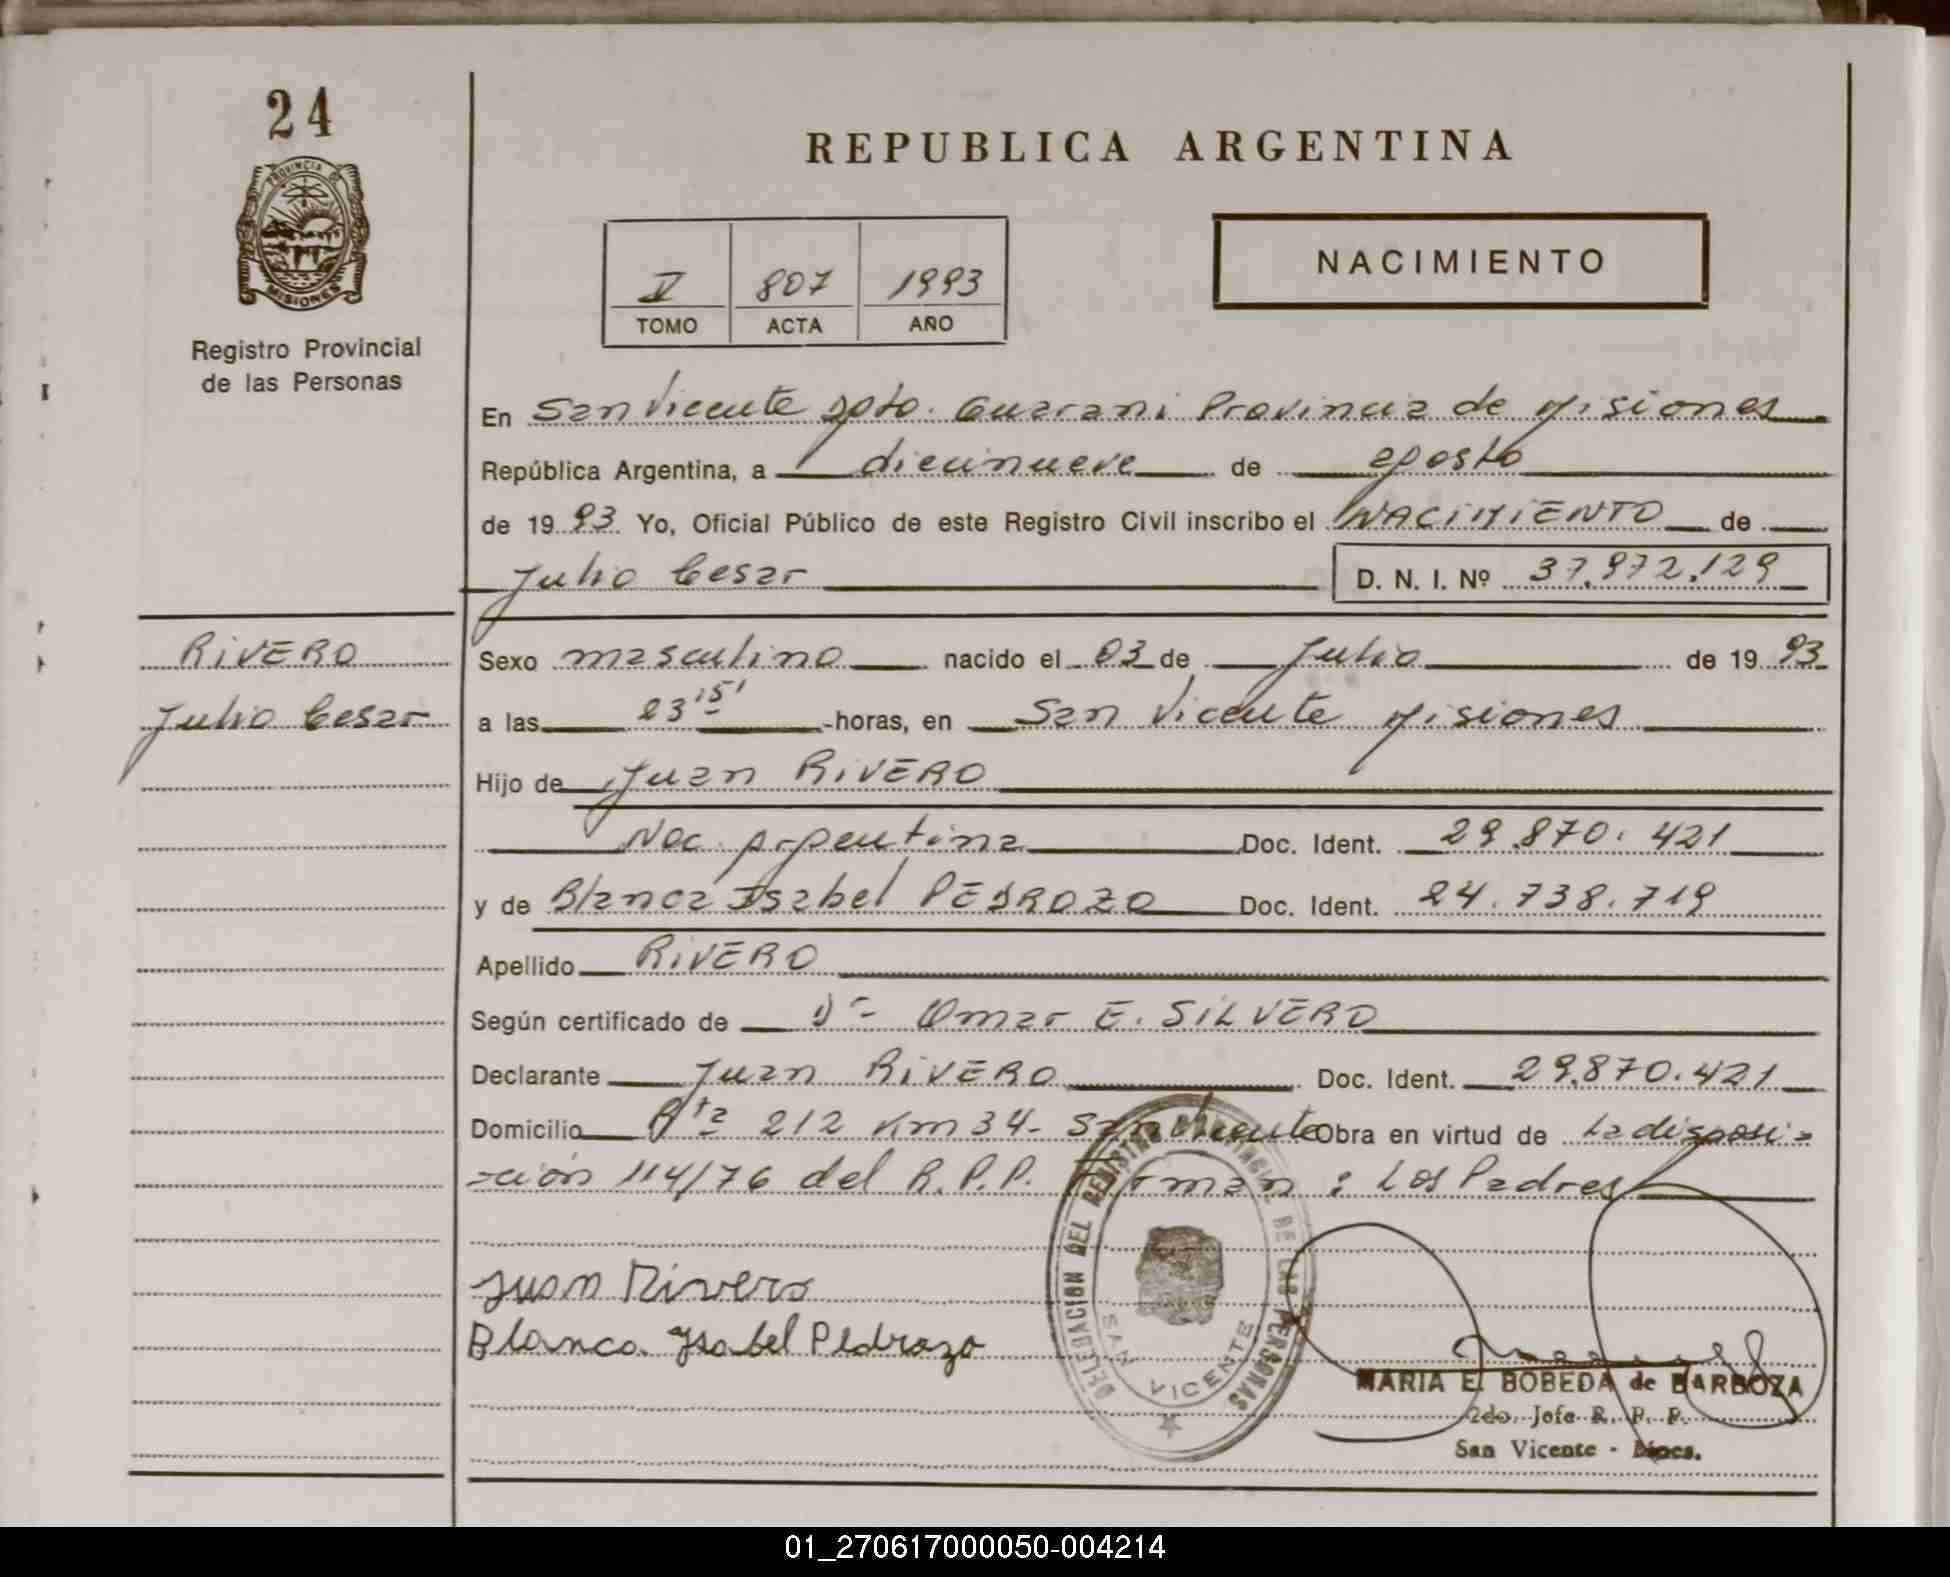 24
PROVINCIA DE
MISIONES
Registro Provincial
de las Personas
REPUBLICA ARGENTINA
V 807 1993
TOMO ACTA AÑO
NACIMIENTO
En San Vicente Dpto. Guarani Provincia de Misiones
República Argentina, a diecinueve de agosto
de 19 93 Yo, Oficial Público de este Registro Civil inscribo el NACIMIENTO de
Julio Cesar D. N. I. Nº 37.972.129
RIVERO
Julio Cesar
Sexo masculino nacido el 03 de Julio de 19 93
a las 23 15' horas, en San Vicente Misiones
Hijo de Juan RIVERO
Nac. Argentina Doc. Ident. 29.870.421
y de Blanca Isabel PEDROZO Doc. Ident. 24.738.719
Apellido RIVERO
Según certificado de Dr Omar E. SILVERO
Declarante Juan RIVERO Doc. Ident. 29.870.421
Domicilio Rta 212 Km 34- San Vicente Obra en virtud de La disposi-
-ción 114/76 del R.P.P. Firman: Los Padres
Juan Rivero
Blanca Ysabel Pedrozo
DELEGACION DEL REGISTRO PROVINCIAL DE LAS PERSONAS
SAN VICENTE
MARIA E. BOBEDA de BARBOZA
2do. Jefe R. P. P.
San Vicente - Mnes.
01_270617000050-004214